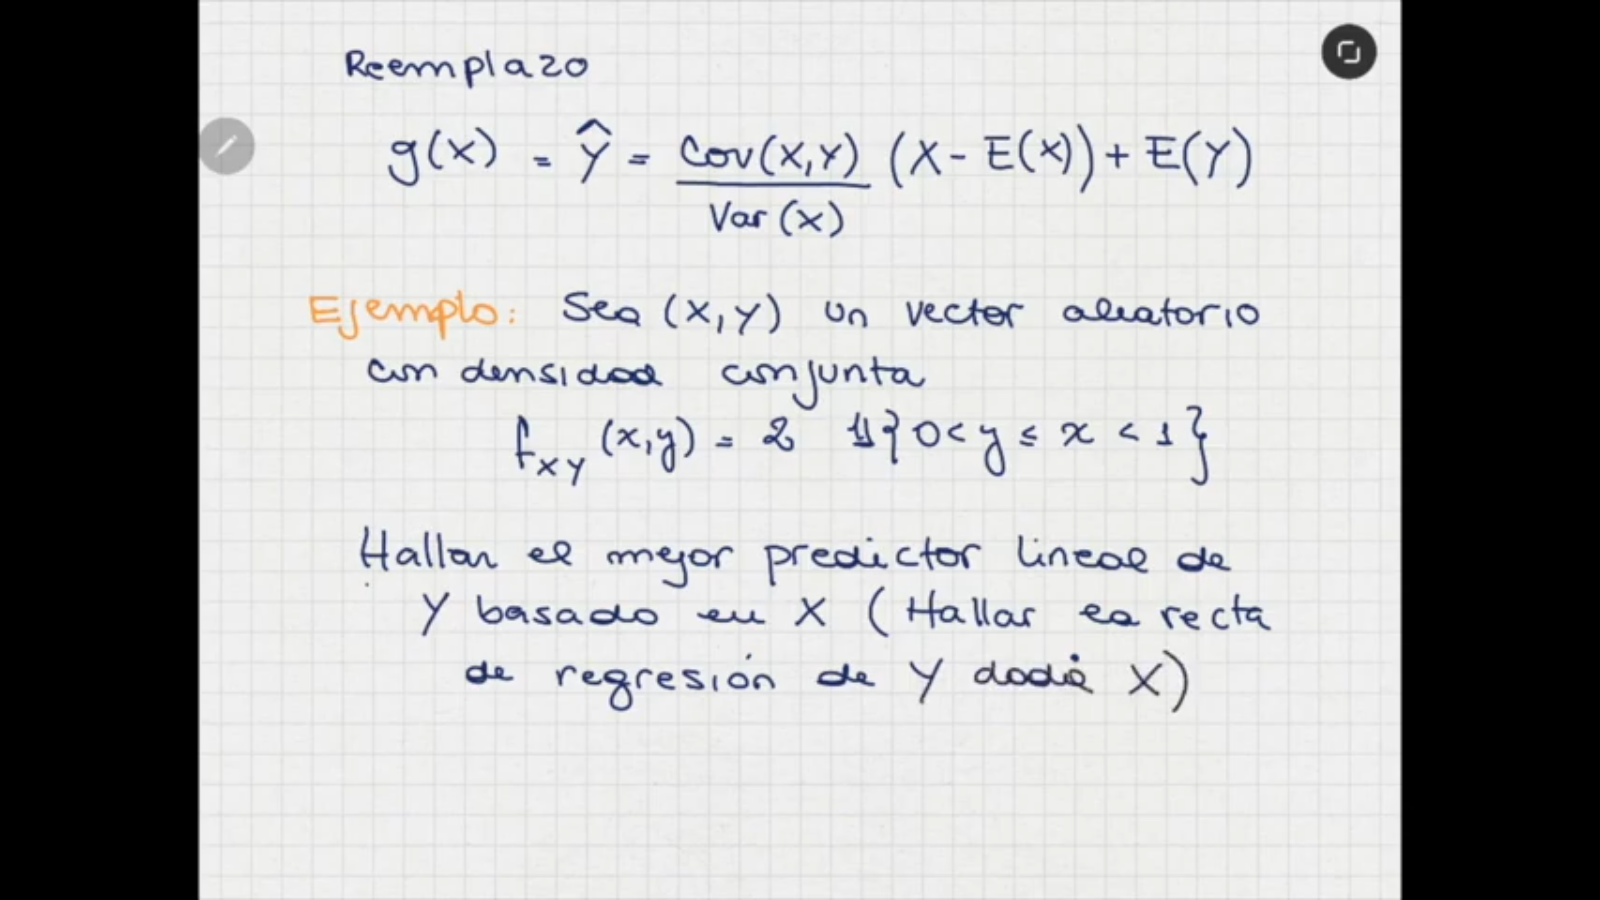 Reemplazo
g(X) = Ŷ = Cov(X,Y) / Var(X) (X - E(X)) + E(Y)
Ejemplo: Sea (X,Y) un vector aleatorio
con densidad conjunta
f_XY (x,y) = 2 𝟙{0 < y ≤ x < 1}
Hallar el mejor predictor lineal de
Y basado en X (Hallar la recta
de regresión de Y dada X)